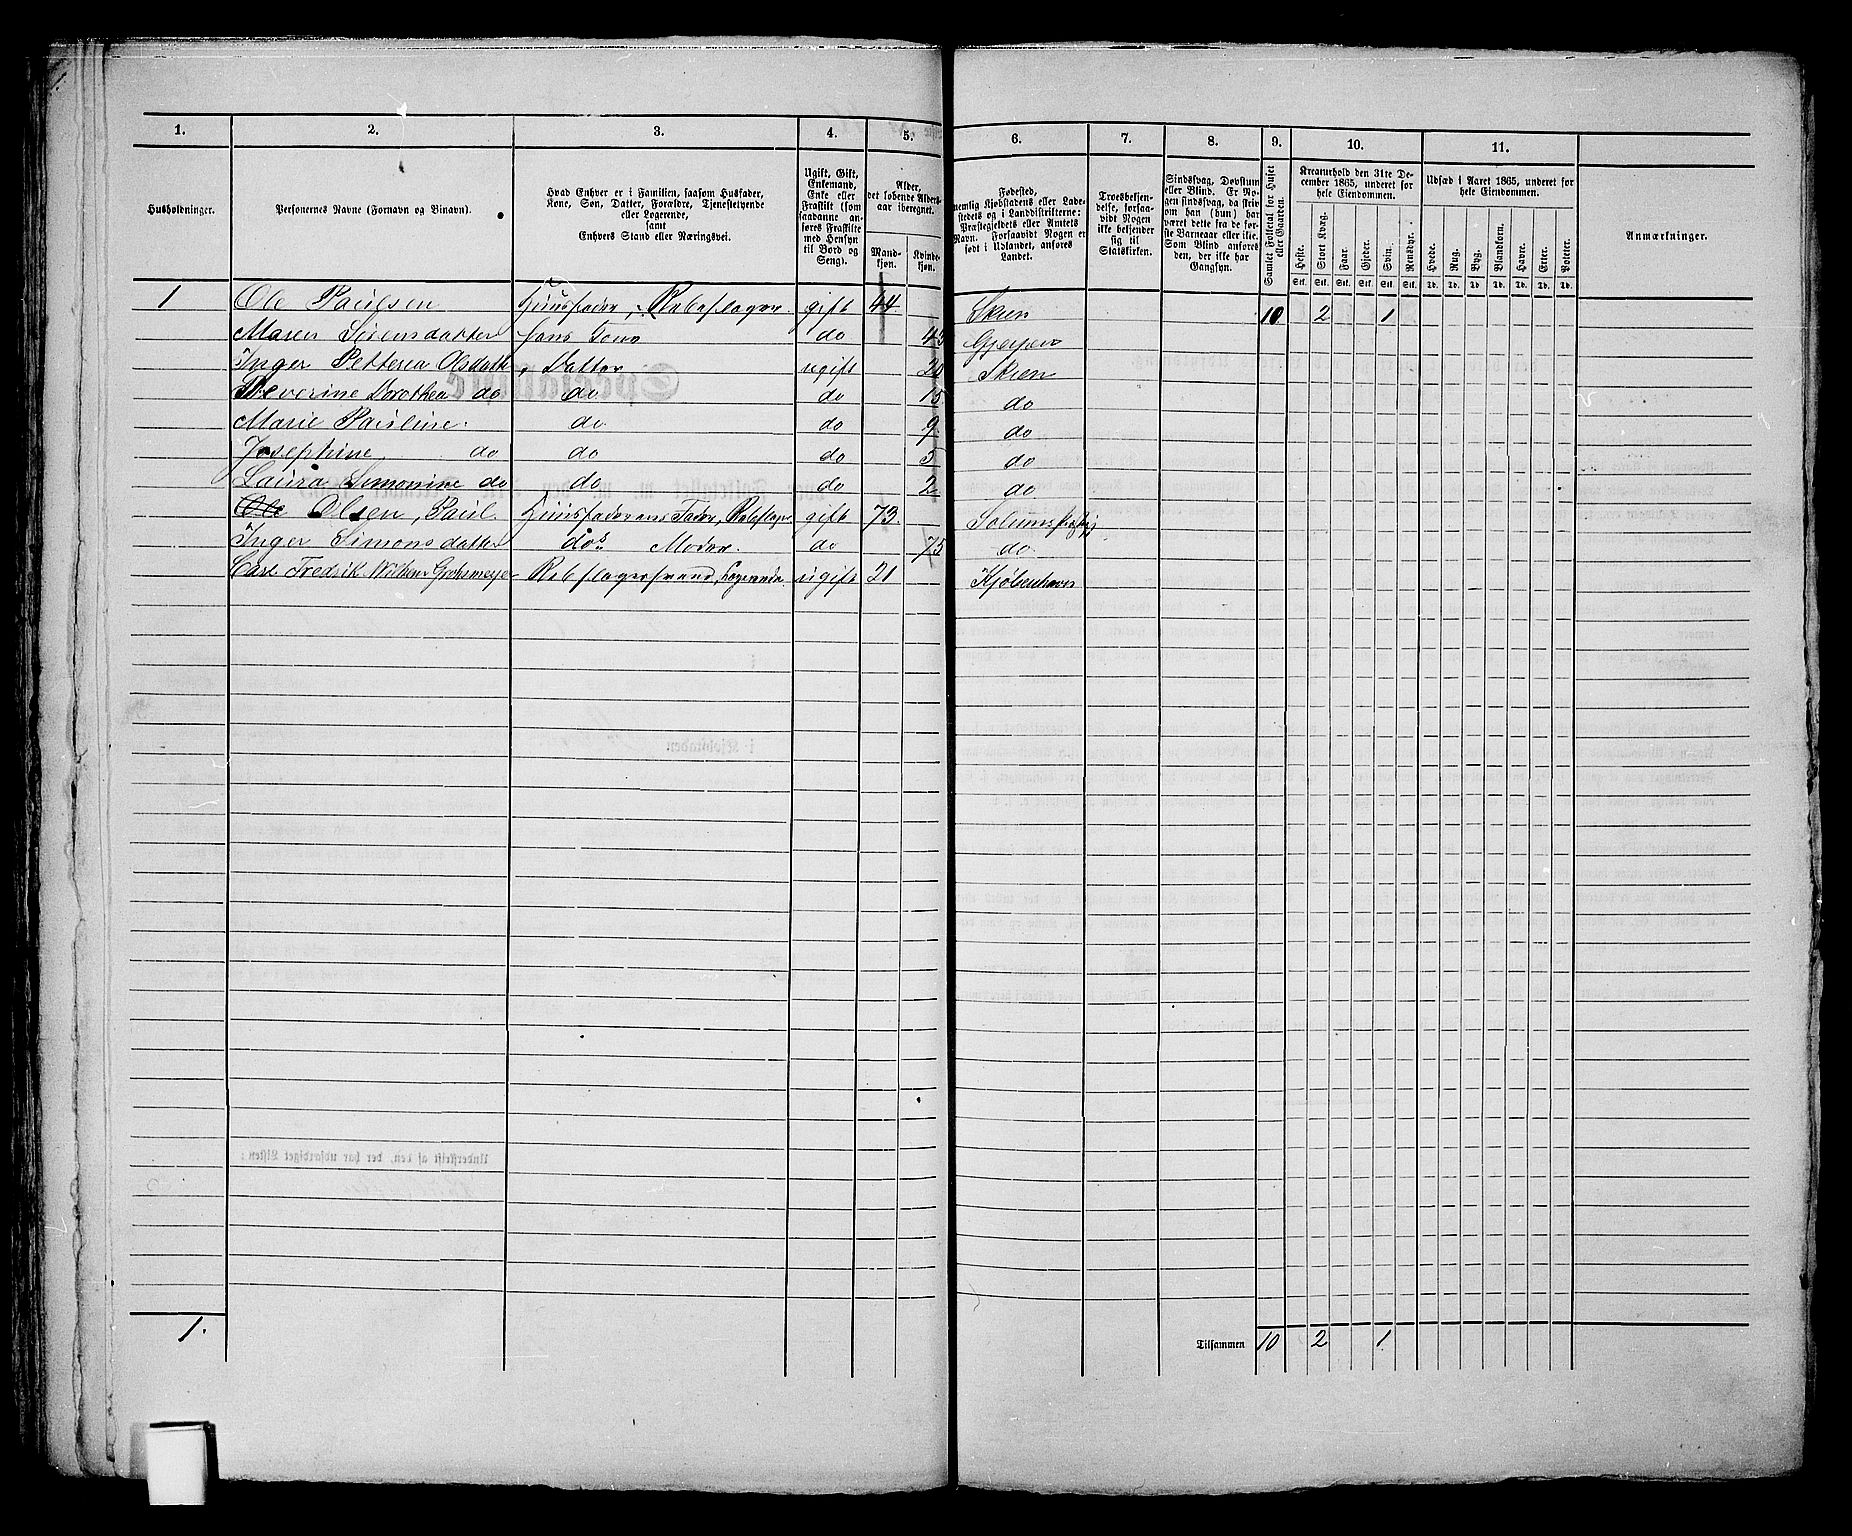 1. 2. 3. 4. 5. 6. 7. 8. 9. 10. 11.
Husholdninger.
Personernes Navne (Fornavn og Binavn).
Hvad Enhver er i Familien, saasom Husfader,
Kone, Søn, Datter, Forældre, Tjenestetyende
eller Logerende,
samt
Enhvers Stand eller Næringsvei.
Ugift, Gift,
Enkemand,
Enke eller
Fraskilt (som
saadanne an-
føres Fraskilte
med Hensyn
til Bord og
Seng).
Alder,
det løbende Alders-
aar iberegnet.
Mand-
kjøn.
Kvinde-
kjøn.
Fødested,
nemlig Kjøbstadens eller Lade-
stedets og i Landdistrikterne:
Præstegjeldets eller Amtets
Navn. Forsaavidt Nogen er
født i Udlandet, anføres
Landet.
Troesbekjen-
delse, forsaa-
vidt Nogen
ikke bekjender
sig til
Statskirken.
Sindssvag, Døvstum
eller Blind. Er No-
gen sindssvag, da skriv
om han (hun) har
været dette fra de før-
ste Barneaar eller ikke.
Som Blind anføres
den, der ikke har
Gangsyn.
Samlet Folketal for Huset
eller Gaarden.
Kreaturhold den 31te De-
cember 1865, underet for
hele Eiendommen.
Heste. Stort Kvæg. Faar. Gjeder. Svin. Rensdyr.
Stk. Stk. Stk. Stk. Stk. Stk.
Udsæd i Aaret 1865, underet for
hele Eiendommen.
Hvede. Rug. Byg. Blandkorn. Havre. Erter. Poteter.
Td. Td. Td. Td. Td. Td. Td.
Anmærkninger.
1 Ole Paulsen Huusfader, Rebslager. gift 44 Skien 10 2 1
Maren Simonsdatter hans Kone do 45
Inger Petterea Olsdatter, Datter ugift 20 Skien
Severine Dorothea do do do 15 do
Marie Pauline. do do 9 do
Josephine do do do 5 do
Laura Simonine do do do 2 do
Ole Olsen, Paul. Huusfaderens Fader, Rebslager gift 73. Solums
Inger Simonsdatter do's Moder. do 75 do.
Carl Fredrik Rebslagersvend, Logerende ugift 21 Kjøbenhavn
1. Tilsammen 10 2 1